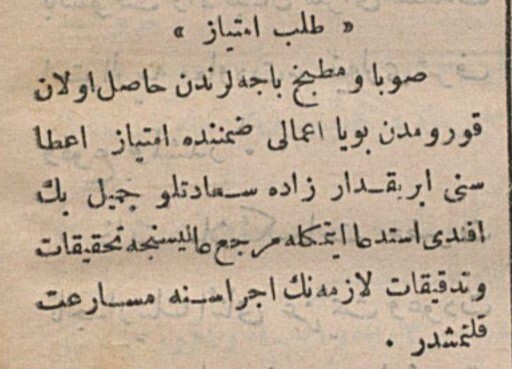 « طلب امتیاز »
صوبا و مطبخ باجه‌لرندن حاصل اولان
قورومدن بویا اعمالی ضمننده امتیاز اعطا
سنی ابریقدار زاده سعادتلو جمیل بك
افندی استدعا ایتمكله مرجع عالیسنجه تحقیقات
و تدقیقات لازمه‌نك اجراسنه مسارعت
قلنمشدر .